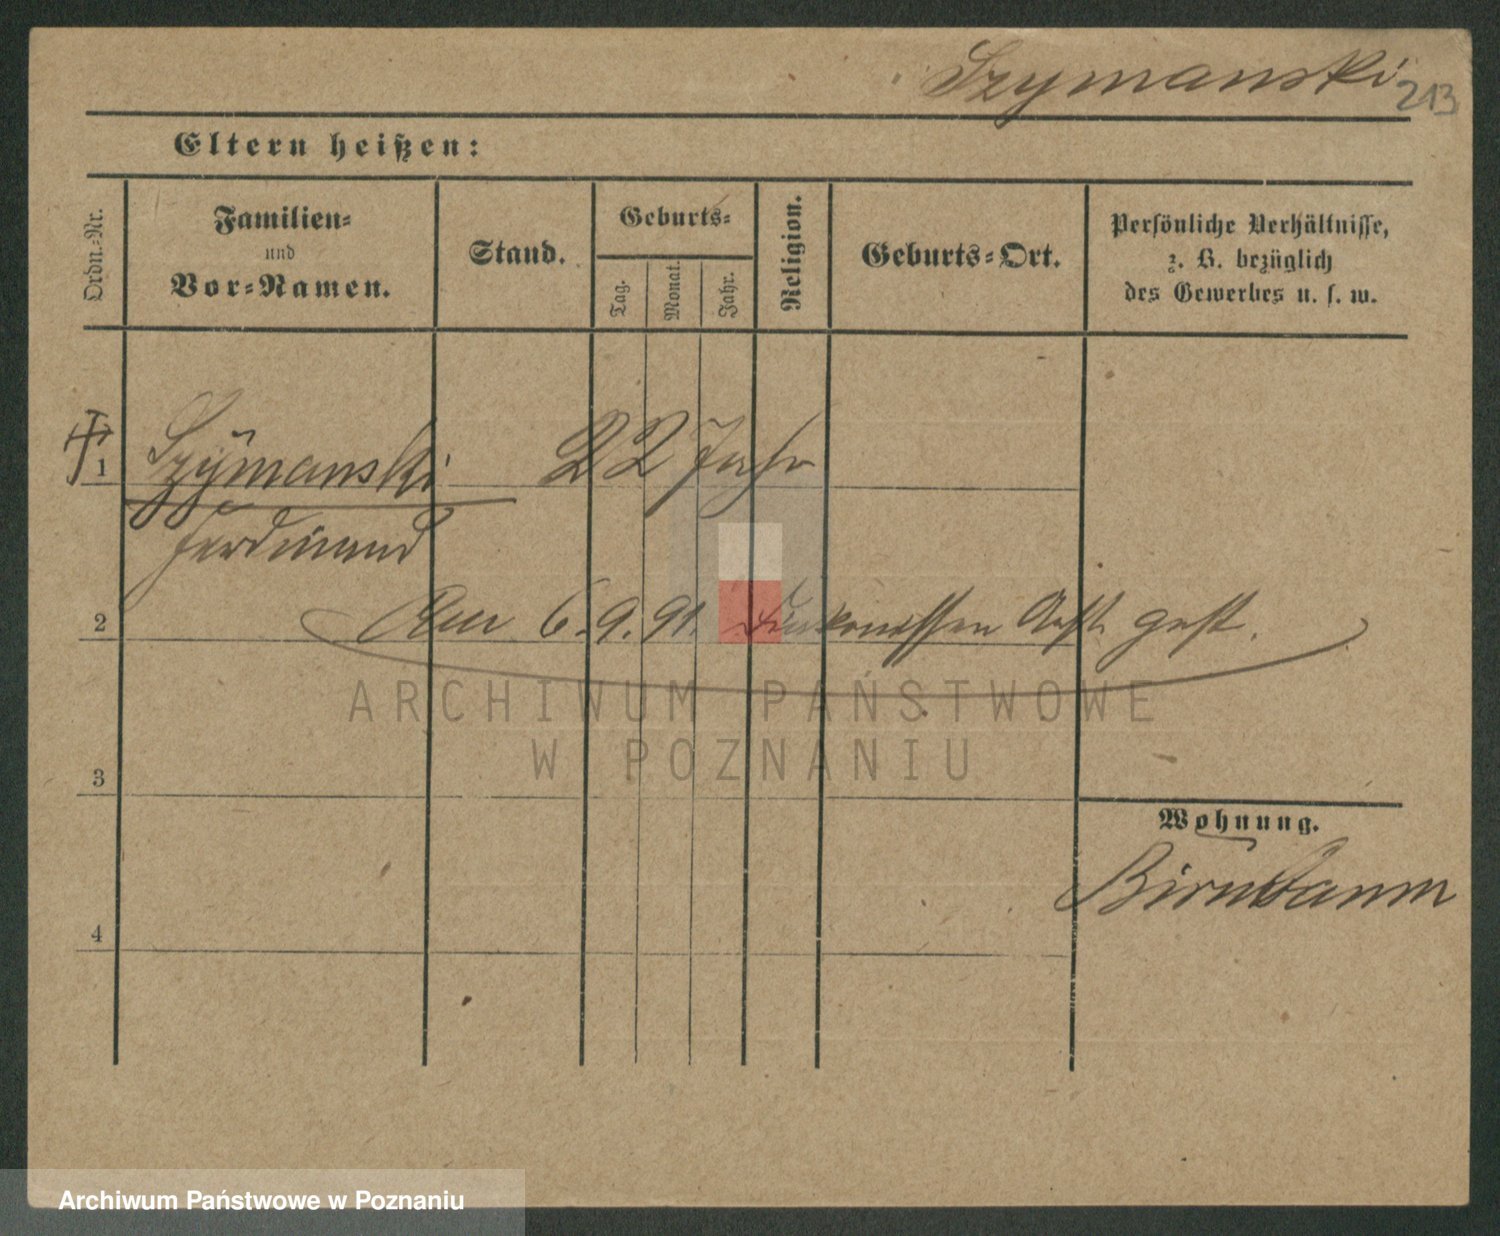 Szymanski
213
Eltern heißen:
Ordn.-Nr.
Familien-
und
Vor-Namen.
Stand.
Geburts-
Tag.
Monat.
Jahr.
Religion.
Geburts-Ort.
Persönliche Verhältnisse,
z. B. bezüglich
des Gewerbes u. s. w.
1 Szymanski 22 Jahr
Ferdinand
2 Am 6.9.91. Diakonissen Anst. gest.
ARCHIWUM PAŃSTWOWE
W POZNANIU
3
Wohnung.
Birnbaum
4
Archiwum Państwowe w Poznaniu